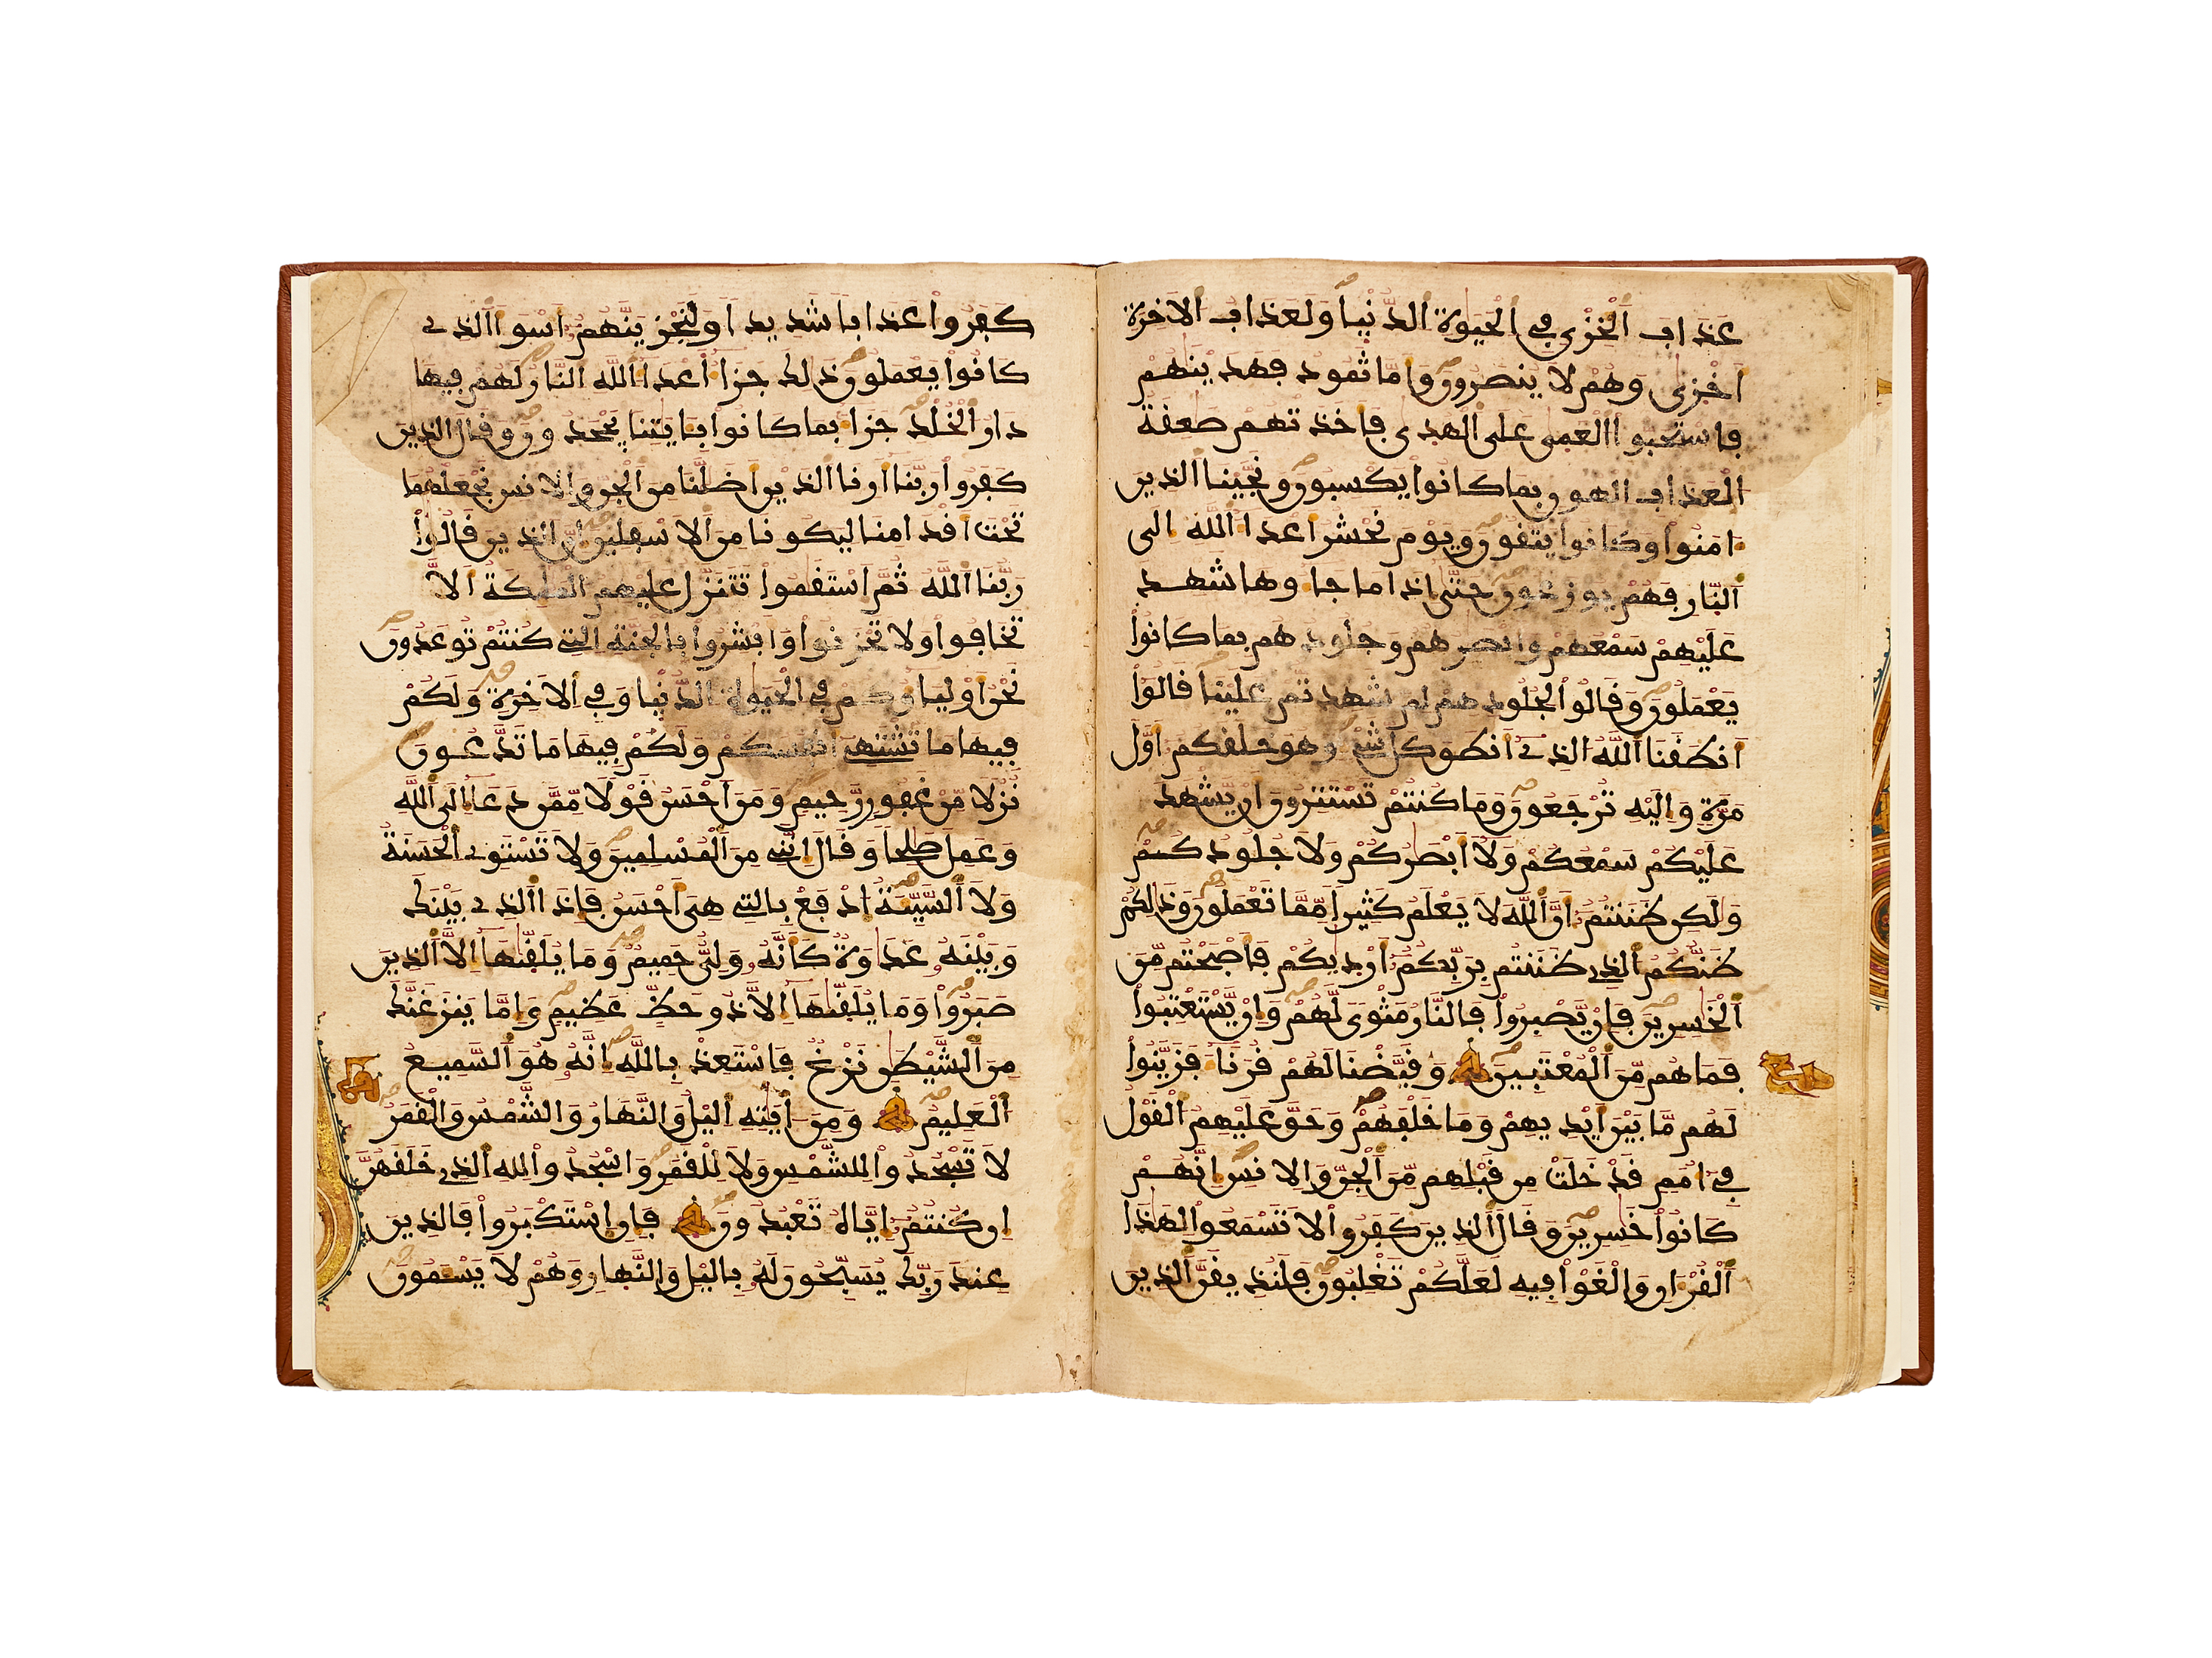 عذاب الخزي في الحيوة الدنيا ولعذاب الاخرة
اخزى وهم لا ينصرون واما ثمود فهدينهم
فاستحبوا العمى على الهدى فاخذتهم صعقة
العذاب الهون بما كانوا يكسبون ونجينا الذين
امنوا وكانوا يتقون ويوم نحشر اعدا الله الى
النار فهم يوزعون حتى اذا ما جاوها شهد
عليهم سمعهم وابصرهم وجلودهم بما كانوا
يعملون وقالوا لجلودهم لم شهدتم علينا قالوا
انطقنا الله الذي انطق كل شي وهو خلقكم اول
مرة واليه ترجعون وما كنتم تستترون ان يشهد
عليكم سمعكم ولا ابصركم ولا جلودكم
ولكن ظننتم ان الله لا يعلم كثيرا مما تعملون وذلكم
ظنكم الذي ظننتم بربكم ارديكم فاصبحتم من
الخسرين فان يصبروا فالنار مثوى لهم وان يستعتبوا
فما هم من المعتبين وقيضنا لهم قرنا فزينوا
لهم ما بين ايديهم وما خلفهم وحق عليهم القول
في امم قد خلت من قبلهم من الجن والانس انهم
كانوا خسرين وقال الذين كفروا لا تسمعوا لهذا
القران والغوا فيه لعلكم تغلبون فلنذيقن الذين
كفروا عذابا شديدا ولنجزينهم اسوا الذي
كانوا يعملون ذلك جزا اعدا الله النار لهم فيها
دار الخلد جزا بما كانوا بايتنا يجحدون وقال الذين
كفروا ربنا ارنا الذين اضلنا من الجن والانس نجعلهما
تحت اقدامنا ليكونا من الاسفلين ان الذين قالوا
ربنا الله ثم استقموا تتنزل عليهم الملئكة الا
تخافوا ولا تحزنوا وابشروا بالجنة التي كنتم توعدون
نحن اولياوكم في الحيوة الدنيا وفي الاخرة ولكم
فيها ما تشتهي انفسكم ولكم فيها ما تدعون
نزلا من غفور رحيم ومن احسن قولا ممن دعا الى الله
وعمل صلحا وقال انني من المسلمين ولا تستوي الحسنة
ولا السيئة ادفع بالتي هي احسن فاذا الذي بينك
وبينه عداوة كانه ولي حميم وما يلقيها الا الذين
صبروا وما يلقيها الا ذو حظ عظيم واما ينزغنك
من الشيطن نزغ فاستعذ بالله انه هو السميع
العليم ومن ايته اليل والنهار والشمس والقمر
لا تسجدوا للشمس ولا للقمر واسجدوا لله الذي خلقهن
ان كنتم اياه تعبدون فان استكبروا فالذين
عند ربك يسبحون له باليل والنهار وهم لا يسمون